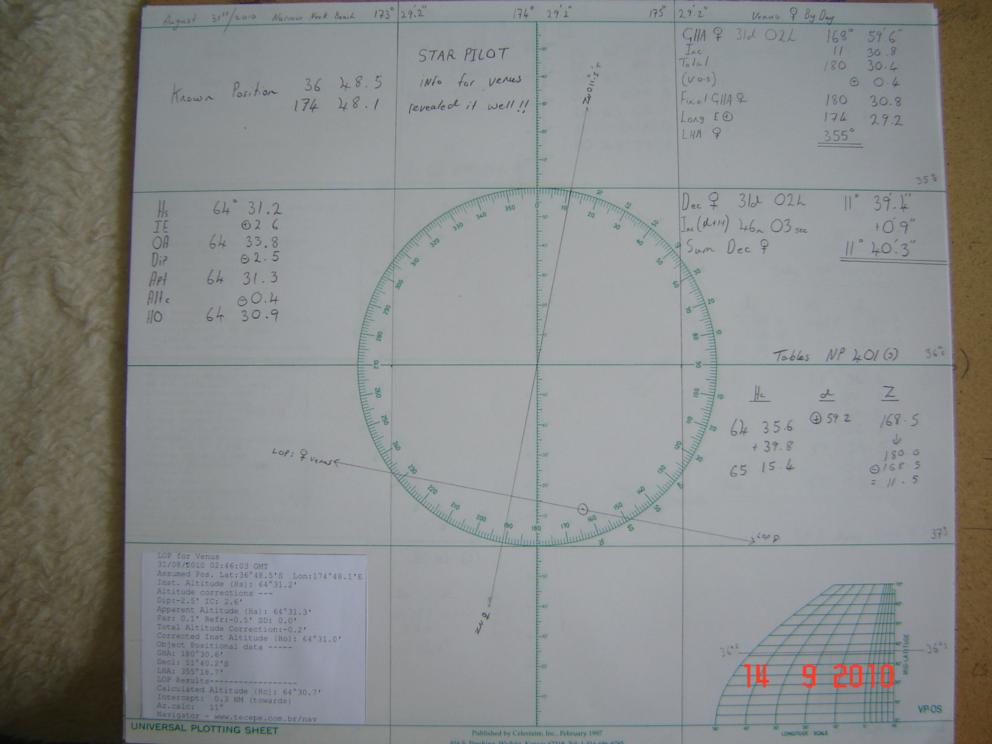 August 31st/2010 Narrow Neck Beach 173° 29.2' 174° 29.2' 175° 29.2' Venus ♀ By Day
Known Position 36 48.5
174 48.1
STAR PILOT
info for venus
revealed it well!!
GHA ♀ 31d 02h 168° 59'6"
Inc 11 30.8
Total 180 30.4
(v0.5) ⊕ 0.4
Final GHA ♀ 180 30.8
Long E ⊕ 174 29.2
LHA ♀ 355°
35°
Hs 64° 31.2
IE ⊕ 2.6
OA 64 33.8
Dip ⊖ 2.5
Apt 64 31.3
Altc ⊖ 0.4
HO 64 30.9
Dec ♀ 31d 02h 11° 39'.4"
Inc (d+1.1) 46m 03sec +0'9"
Sum Dec ♀ 11° 40'.3"
Tables NP 401(3) 36°
Hc d Z
64 35.6 ⊕ 59.2 168.5
+ 39.8 ↓
65 15.4 180.0
⊖ 168.5
= 11.5
LOP: ♀ venus
LOP
37°
LOP for Venus
31/08/2010 02:46:03 GMT
Assumed Pos. Lat:36°48.5'S Lon:174°48.1'E
Inst. Altitude (Hs): 64°31.2'
Altitude corrections ---
Dip:-2.5' IC: 2.6'
Apparent Altitude (Ha): 64°31.3'
Par: 0.1' Refr:-0.5' SD: 0.0'
Total Altitude Correction:-0.2'
Corrected Inst Altitude (Ho): 64°31.0'
Object Positional data -----
GHA: 180°30.6'
Decl: 11°40.2'S
LHA: 355°18.7'
LOP Results-----------------
Calculated Altitude (Hc): 64°30.7'
Intercept: 0.3 NM (towards)
Az.calc: 11°
Navigator - www.tecepe.com.br/nav
MID-LATITUDE
LONGITUDE SCALE
14 9 2010
VP-OS
UNIVERSAL PLOTTING SHEET
Published by Celestaire, Inc., February 1997